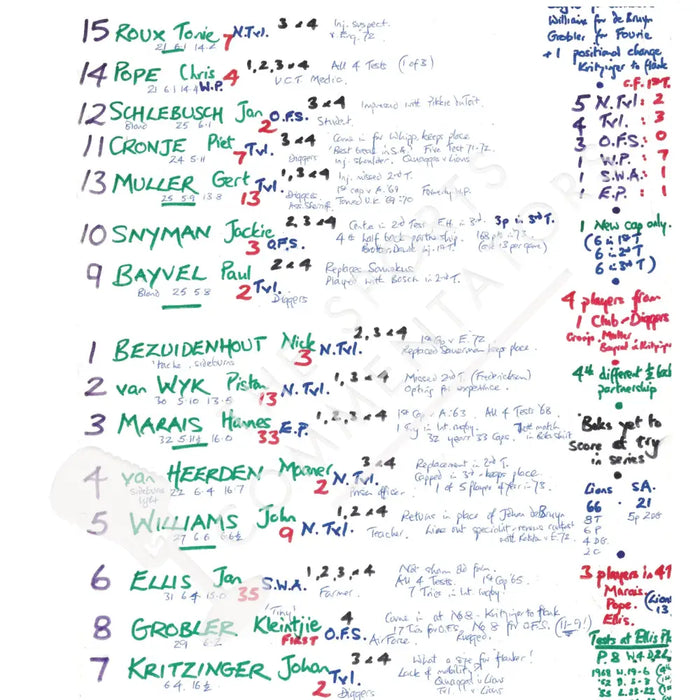 15 ROUX Tonie 7 N.Tvl. 3 & 4 Inj. suspect.
21 6.1 14.2 v. Eng. '72
14 POPE Chris 4 W.P. 1,2,3 & 4 All 4 Tests (1 of 3)
21 6.1 14.4 U.C.T. Medic.
12 SCHLEBUSCH Jan 2 O.F.S. 3 & 4 Impressed with Pikkie duToit.
Blond 25 6.1 Student
11 CRONJE Piet 7 Tvl. 3 & 4 Came in for Whipp. keeps place
24 5.11 Diggers "Best back in S.A." Five Test 71-72.
Inj. shoulder. Quaggas v Lions
13 MULLER Gert 13 Tvl. 1,3 & 4 Inj. missed 2nd T.
25 5.9 13.8 Diggers 1st cap v A. '69 Formerly W.P.
Toured U.K. 69-70
10 SNYMAN Jackie 3 O.F.S. 2,3 & 4 Centre in 2nd Test F.H. in 3rd. 3p in 3rd T.
4th half back partnership.
9 BAYVEL Paul 2 Tvl. 2 & 4 Replaces Sonnekus
Blond 25 5.8 Diggers Played with Bosch in 2nd T.
1 BEZUIDENHOUT Nick 3 N.Tvl. 2,3 & 4 1st Cap v E. 72
'tache, sideburns Replaced Sauerman keeps place.
2 van WYK Piston 13 N.Tvl. 1,3 & 4 Missed 2nd T. (Fredrickson)
30 5.10 13.5 Opting for experience
3 MARAIS Hannes 33 E.P. 1,2,3 & 4 1st Cap. A. '63. All 4 Tests '68.
32 5.11½ 16.0 1 try in Int. rugby.
32 years 33 Caps.
4 van HEERDEN Moaner 2 N.Tvl. 3 & 4 Replacement in 2nd T.
Sideburns light 22 6.4 16.7 Prison officer. Capped in 3rd - keeps place
1 of 5 players
5 WILLIAMS John 9 N.Tvl. 1,2 & 4 Returns in place of Johan deBruyn
27 6.6 Teacher. Line out specialist - renews contact
v E. 72
6 ELLIS Jan 35 S.W.A. 1,2,3 & 4
31 6.4 15.0 Farmer. All 4 Tests. 1st Cap '65.
7 Tries in Int. rugby
8 GROBLER Kleintjie FIRST O.F.S. 4 Came in at No 8 - Kritzinger to flank
'Tiny' 29 6.2 Air Force 17 Tries for O.F.S. No 8 for O.F.S. (11-9!)
7 KRITZINGER Johan 2 Tvl. 3 & 4 What a size for flanker!
6.4 16.½ Diggers Lack of mobility?
Quaggas v Lions
Tvl v Lions
Williams for de Bruyn
Grobler for Fourie
+ 1 positional change
Kritzinger to flank
C.F. 1st T.
5 N.Tvl: 2
4 Tvl. : 3
3 O.F.S: 0
1 W.P. : 7
1 S.W.A.: 1
1 E.P. : 1
1 New cap only.
(6 in 1st T
6 in 2nd T
6 in 3rd T)
4 players from
1 Club - Diggers
Cronje, Muller
Bayvel & Kritzinger
4th different ½ back
partnership
'Boks yet to
score a try
in series
Lions SA.
66 . 21
8T 5p 2DG
6P
4DG.
2C
3 players in
Marais
Pope. (Lions
Ellis. 13
Tests at Ellis Pk
THE SPORTS
COMMENTATOR